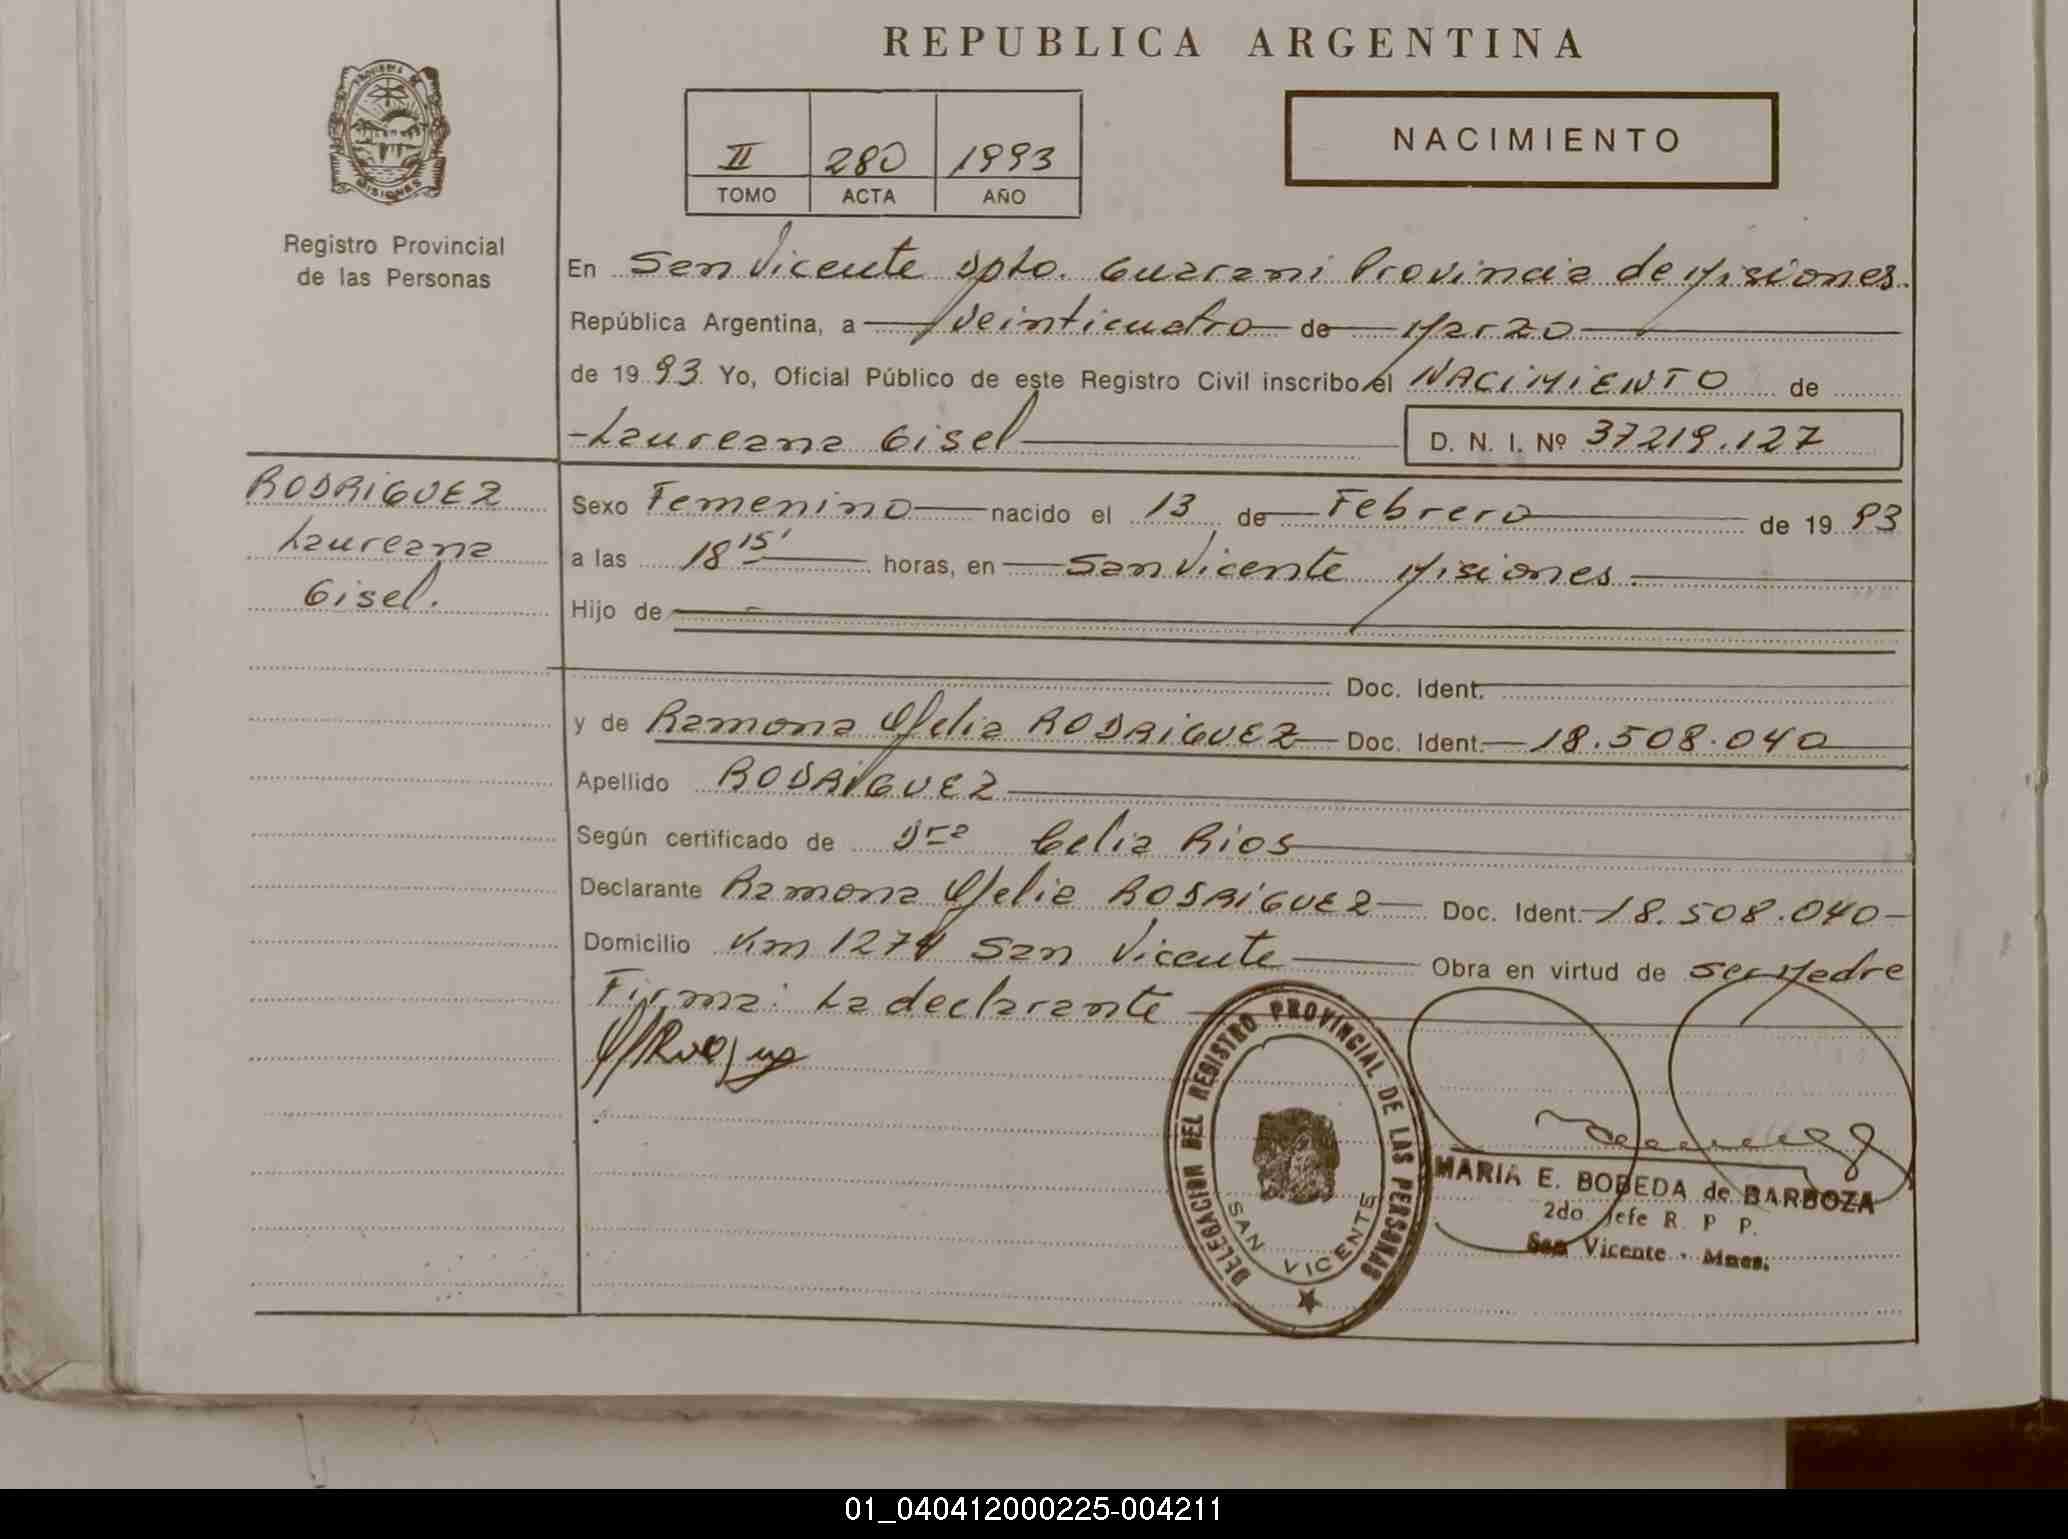 REPUBLICA ARGENTINA
PROVINCIA DE MISIONES
Registro Provincial
de las Personas
II 280 1993
TOMO ACTA AÑO
NACIMIENTO
En San Vicente Dpto. Guarani Provincia de Misiones.
República Argentina, a veinticuatro de Marzo
de 1993 Yo, Oficial Público de este Registro Civil inscribo el NACIMIENTO de
Laureana Gisel D. N. I. Nº 37219.127
RODRIGUEZ
Laureana
Gisel.
Sexo Femenino nacido el 13 de Febrero de 1993
a las 18 15' horas, en San Vicente Misiones.
Hijo de
Doc. Ident.
y de Ramona Ofelia RODRIGUEZ Doc. Ident. 18.508.040
Apellido RODRIGUEZ
Según certificado de Dra Celia Rios
Declarante Ramona Ofelia RODRIGUEZ Doc. Ident. 18.508.040
Domicilio Km 1274 San Vicente Obra en virtud de ser Madre
Firma: La declarante
DELEGACION DEL REGISTRO PROVINCIAL DE LAS PERSONAS
SAN VICENTE
MARIA E. BOBEDA de BARBOZA
2do. Jefe R. P P.
San Vicente - Mnes.
01_040412000225-004211